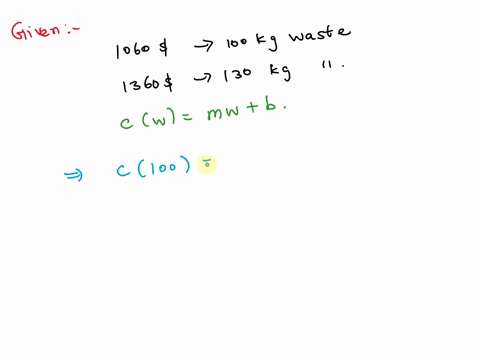 Given:-
1060 $ → 100 kg waste
1360 $ → 130 kg ".
c (w) = mw + b.
⇒ c (100) =